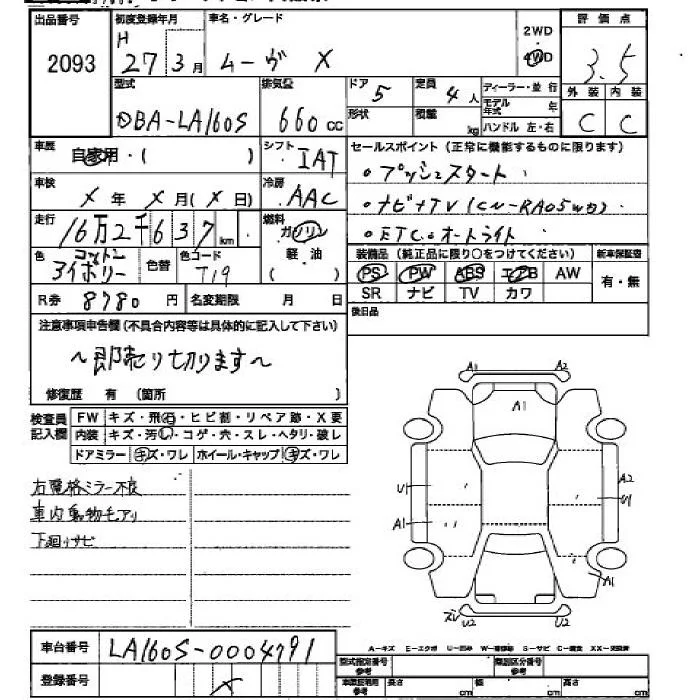 出品番号 2093
初度登録年月 H 27 3月
車名・グレード ムーヴ X
2WD 4WD
評価点 3.5
外装 C 内装 C
型式 DBA-LA160S
排気量 660cc
ドア 5
形状
定員 4人
積載 kg
ディーラー・並行
モデル年式 年
ハンドル 左・右
車歴 自家用・( )
シフト IAT
セールスポイント(正常に機能するものに限ります)
・プッシュスタート
・ナビ+TV(CN-RA05WD)
・ETC・オートライト
車検 X年 X月(X日)
冷房 AAC
走行 16万2千637km
燃料 ガソリン 軽油 ( )
色 コットンアイボリー
色替
色コード T19
装備品(純正品に限り○をつけてください)
PS PW ABS エアB AW
SR ナビ TV カワ
新車保証書 有・無
R券 8780円
名変期限 月 日
後日品
注意事項申告欄(不具合内容等は具体的に記入して下さい)
~即売り切ります~
修復歴 有 (箇所 )
検査員記入欄
FW キズ・飛石・ヒビ割・リペア跡・X要
内装 キズ・汚れ・コゲ・穴・スレ・ヘタリ・破レ
ドアミラー キズ・ワレ ホイール・キャップ キズ・ワレ
右電格ミラー不良
車内動物毛アリ
下廻りサビ
A1 A2
A1
U1 A2
U1
A1
A1
U2 U2
車台番号 LA160S-0004791
登録番号 X
A-キズ E-エクボ U-凹み W-補修跡 S-サビ C-腐食 XX-交換済
型式指定番号 参考
類別区分番号 参考
車庫証明用 参考 長さ cm 幅 cm 高さ cm